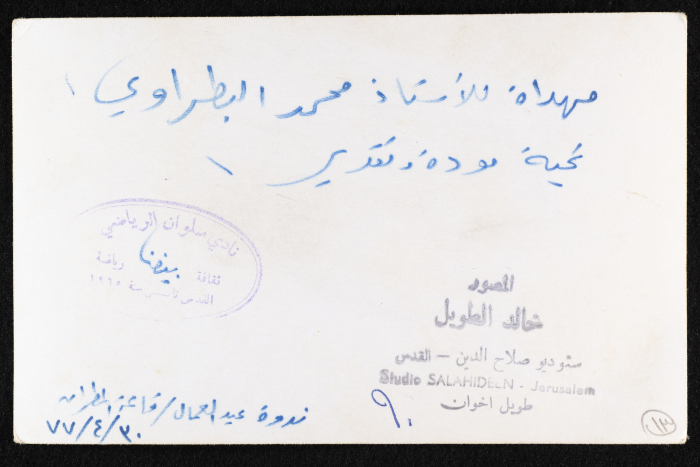 مهداة للأستاذ محمد البطراوي
تحية مودة وتقدير
نادي سلوان الرياضي
ثقافة
رياضة
القدس تأسس سنة ١٩٦٥
المصور
خالد الطويل
ستوديو صلاح الدين - القدس
Studio SALAHIDEEN - Jerusalem
طويل اخوان
ندوة عيد العمال / قاعة المطران
٧٧/٤/٣٠
٩٠
١٣